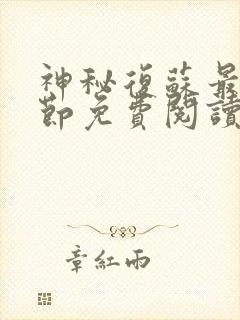 神秘復蘇最
節免費閱讀
章紅雨